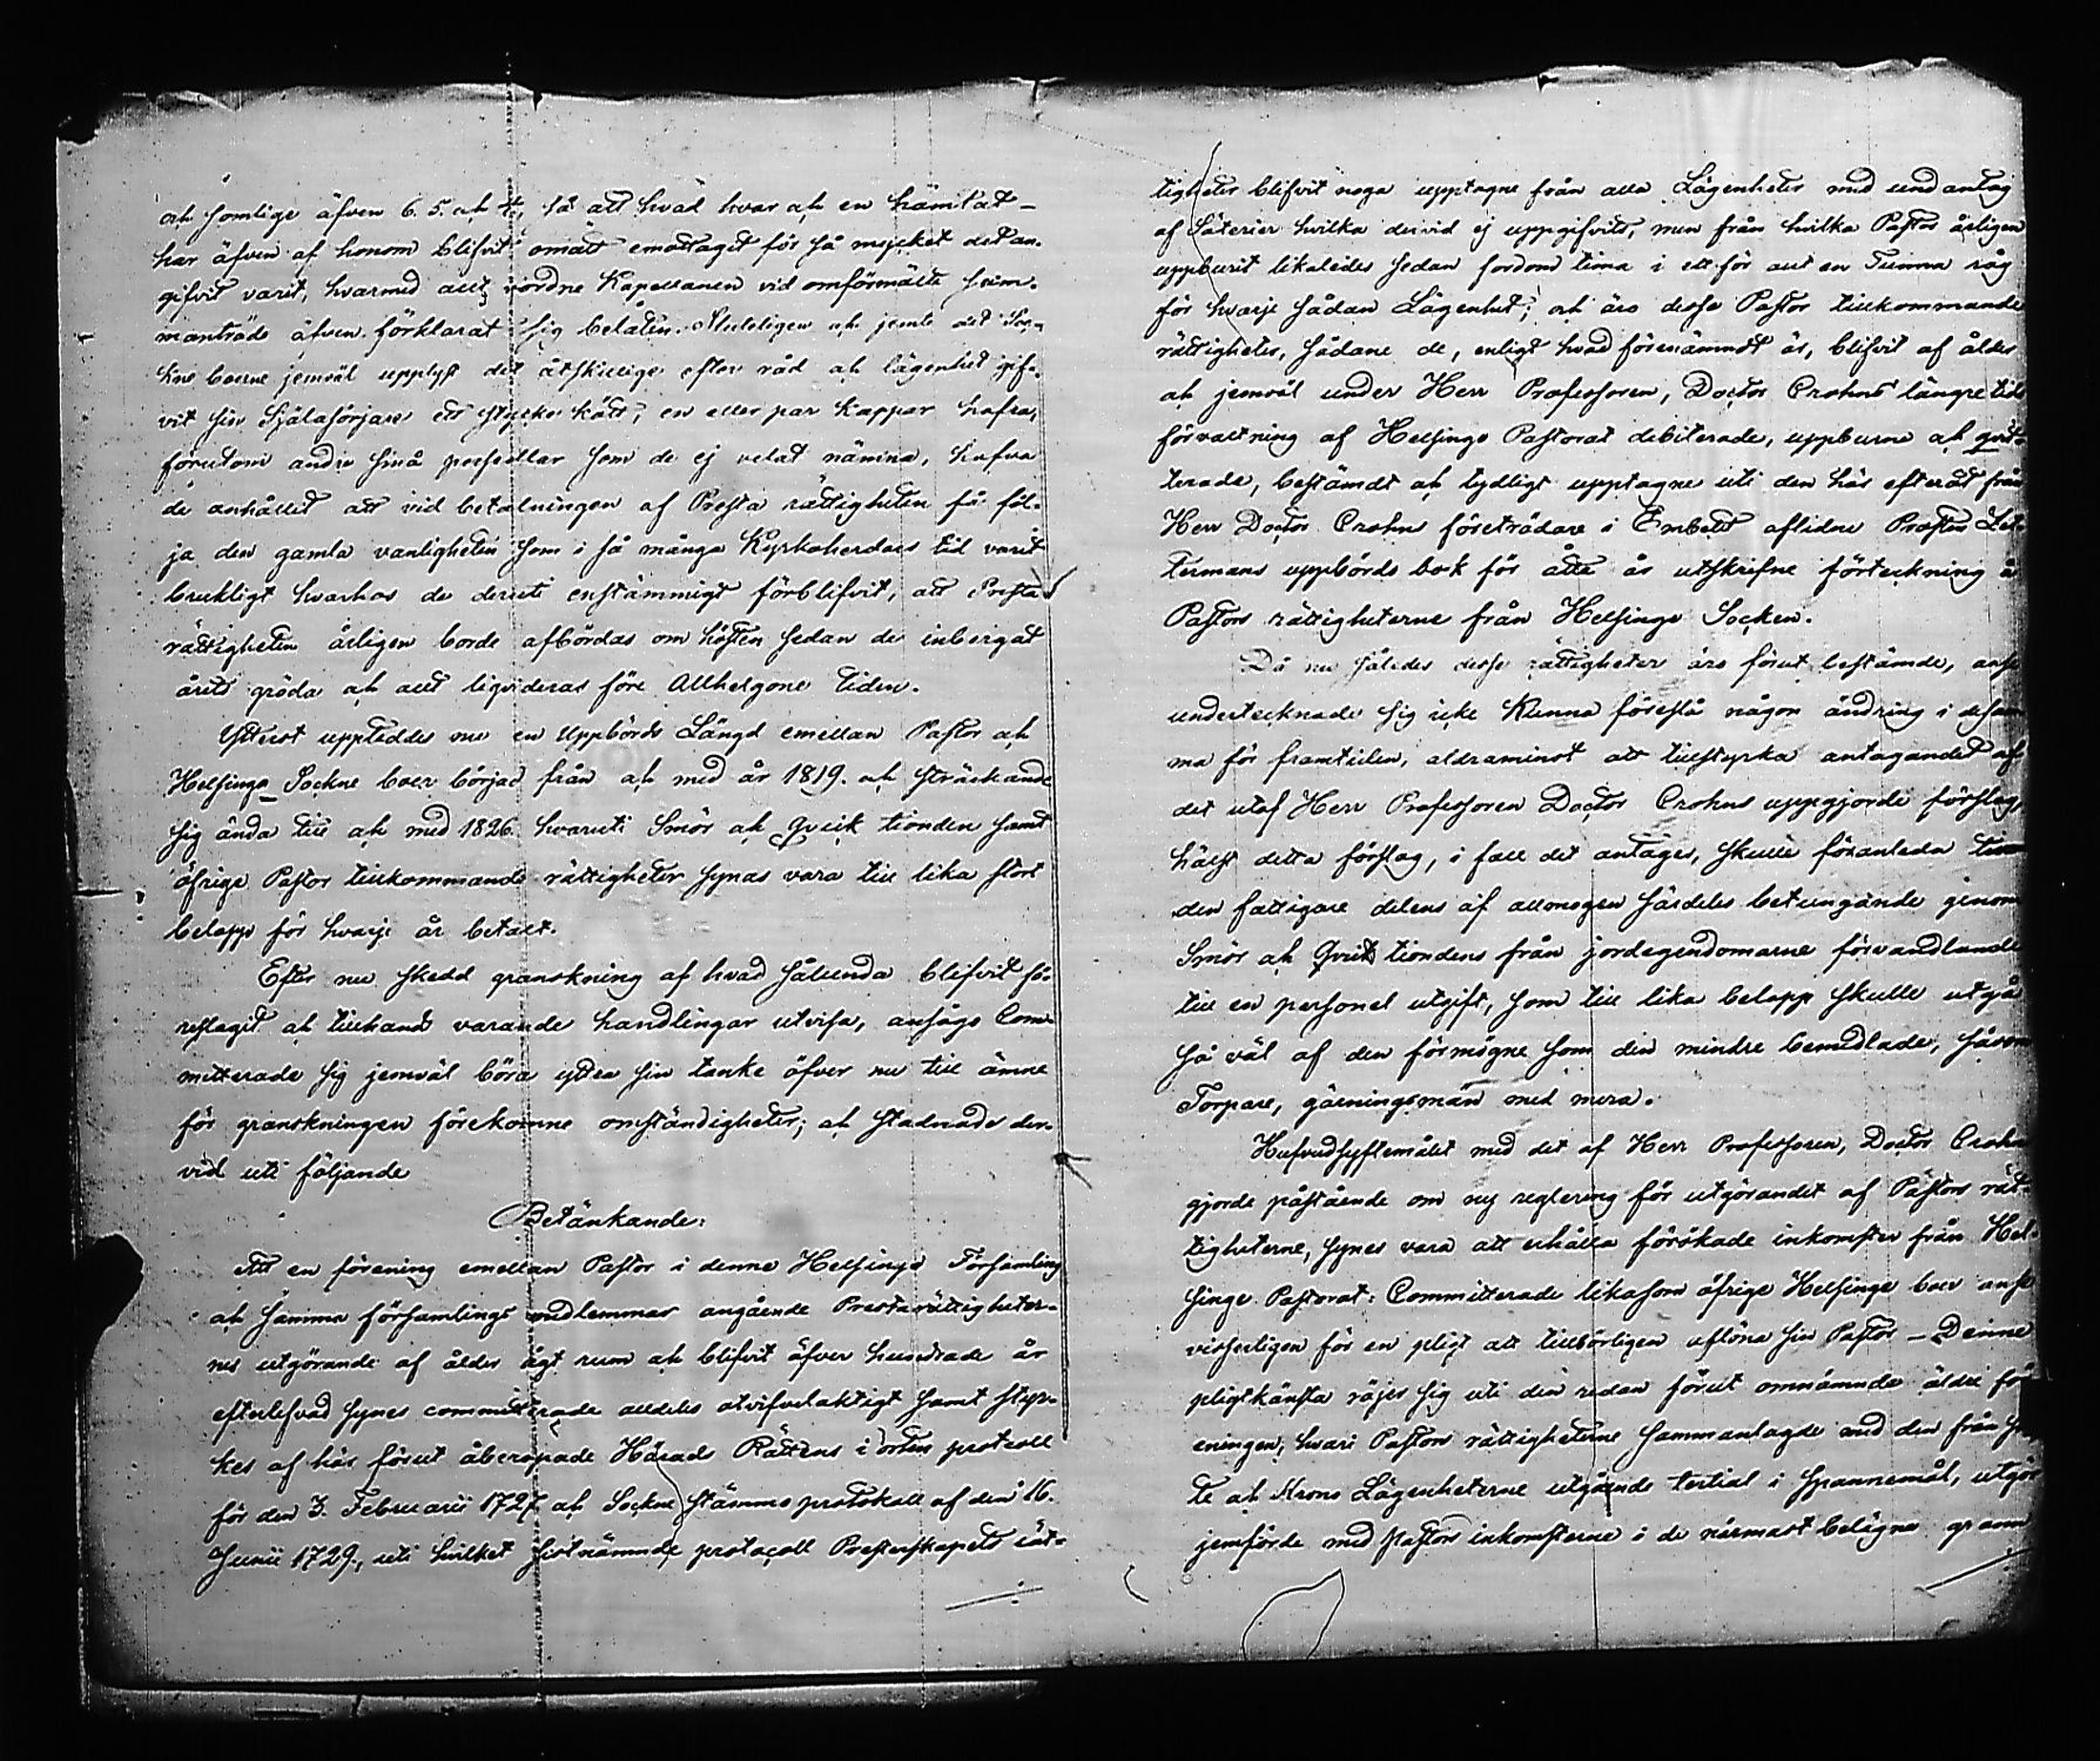 och somlige äfven 6. 5. och 4., så att hvad hvar och en hämtat –
har äfven af honom blifvit omätt emottaget för så mycket det an-
gifvit varit, hvarmed allt, vördne Kapellanen vid omförmälte sam-
manträde äfven förklarat sig belåten. Sluteligen och jemte det Soc-
kne boerne jemväl upplyst det åtskillige efter råd och lägenhet gif-
vit sin Själasörjare ett stycke kött, en eller par kappar hafra,
förutom andre små persedlar som de ej velat nämna, hafva
de anhållit att vid betalningen af Presta rättigheten få föl-
ja den gamla vanligheten som i så många Kyrkoherdars tid varit
brukligt hvarhos de deruti enstämmigt förblifvit, att Presta
rättigheten årligen borde afbördas om hösten sedan de inbergat
årets gröda och allt liqvideras före Allhelgone tiden.
Ytterst uppteddes nu en Uppbörds Längd emellan Pastor och
Helsinge Sockne boer börjad från och med år 1819. och sträckande
sig ända till och med 1826. hvaruti Smör och Qvick tionden samt
öfrige Pastor tillkommande rättigheter synas vara till lika stort
belopp för hvarje år betalt.
Efter nu skedd granskning af hvad sålunda blifvit fö-
reslagit och tillhand varande handlingar utvisa, ansågo Com-
mitterade sig jemväl böra yttra sin tanke öfver nu till ämne
för granskningen förekomne omständigheter; och stadnade der-
vid uti följande
Betänkande:
Att en förening emellan Pastor i denne Helsinge Församling
och samma församlings medlemmar angående Prestarättigheter-
nes utgörande af ålder ägt rum och blifvit öfver hundrade år
efterlefvad synes committerade alldeles otvifvelaktigt samt styr-
kes af här förut åberopade Härads Rättens i orten protocoll
för den 3. Februarii 1727 och Sockne stämmo protokoll af den 16.
Junii 1729., uti hvilket sistnämnde protocoll Presterskapets rät-
tigheter blifvit noga upptagne från alla Lägenheter med undantag
af Säterier hvilka dervid ej uppgifvits, men från hvilka Pastor årligen
uppburit likaledes sedan fordom tima i ett för allt en Tunna råg
för hvarje sådan Lägenhet; och äro desse Pastor tillkommande
rättigheter, sådane de, enligt hvad förenämndt är, blifvit af ålder
och jemväl under Herr Professoren, Doctor Crohns längre tids
förvaltning af Helsinge Pastorat debiterade, uppburne och qvit-
terade, bestämdt och tydligt upptagne uti den här efteråt från
Herr Doctor Crohns företrädare i Embetet aflidne Prosten Let-
termans uppbörds bok för åtta år utskrifne förteckning å
Pastors rättigheterne från Helsinge Socken.
Då nu således desse rättigheter äro förut bestämde, anse
undertecknade sig icke Kunna föreslå någon ändring i desam-
ma för framtiden, aldraminst att tillstyrka antagandet af
det utaf Herr Professoren Doctor Crohns uppgjorde förslag,
hälst detta förslag, i fall det antages, skulle föranleda till
den fattigare delens af allmogen särdeles betungande genom
Smör och Qvick tiondens från jordegendomarne förvandlande
till en personel utgift, som till lika belopp skulle utgå
så väl af den förmögne som den mindre bemedlade, såsom
Torpare, gärningsmän med mera.
Hufvudsyftemålet med det af Herr Professoren, Doctor Crohn
gjorde påstående om ny reglering för utgörandet af Pastors rät-
tigheterne, synes vara att erhålla förökade inkomster från Hel-
singe Pastorat: Committerade likasom öfrige Helsinge boer anse
visserligen för en pligt att tillbörligen aflöna sin Pastor – Denne
pligtkänsla röjer sig uti den redan förut omnämnde äldre för-
eningen, hvari Pastors rättigheterne sammanlagde med den från
te och Krono Lägenheterne utgående tertial i Spannemål, utgör
jemförde med Pastors inkomsterne i de närmast belägne grann